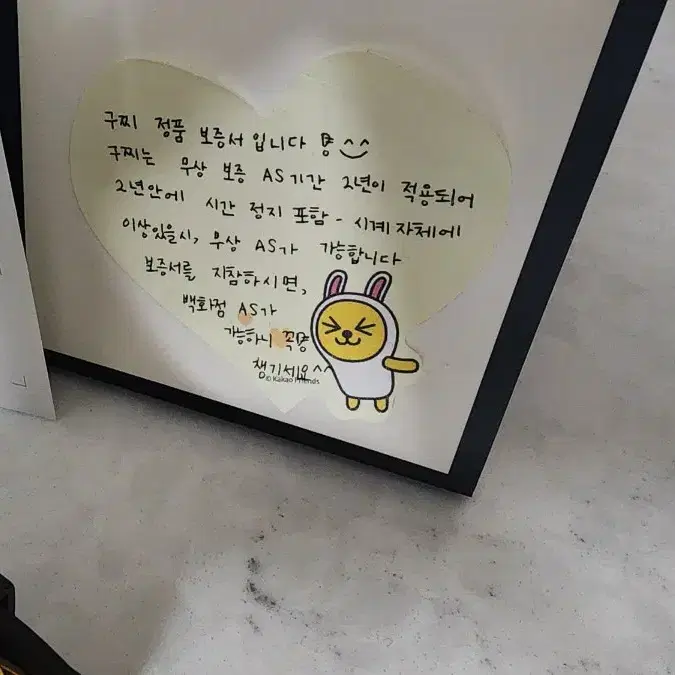 구찌 정품 보증서 입니다 ^^
구찌는 무상 보증 AS기간 2년이 적용되어
2년안에 시간 정지 포함 - 시계자체에
이상있을시, 무상 AS가 가능합니다
보증서를 지참하시면,
백화점 AS가
가능하니 꼭
챙기세요^^
© Kakao Friends